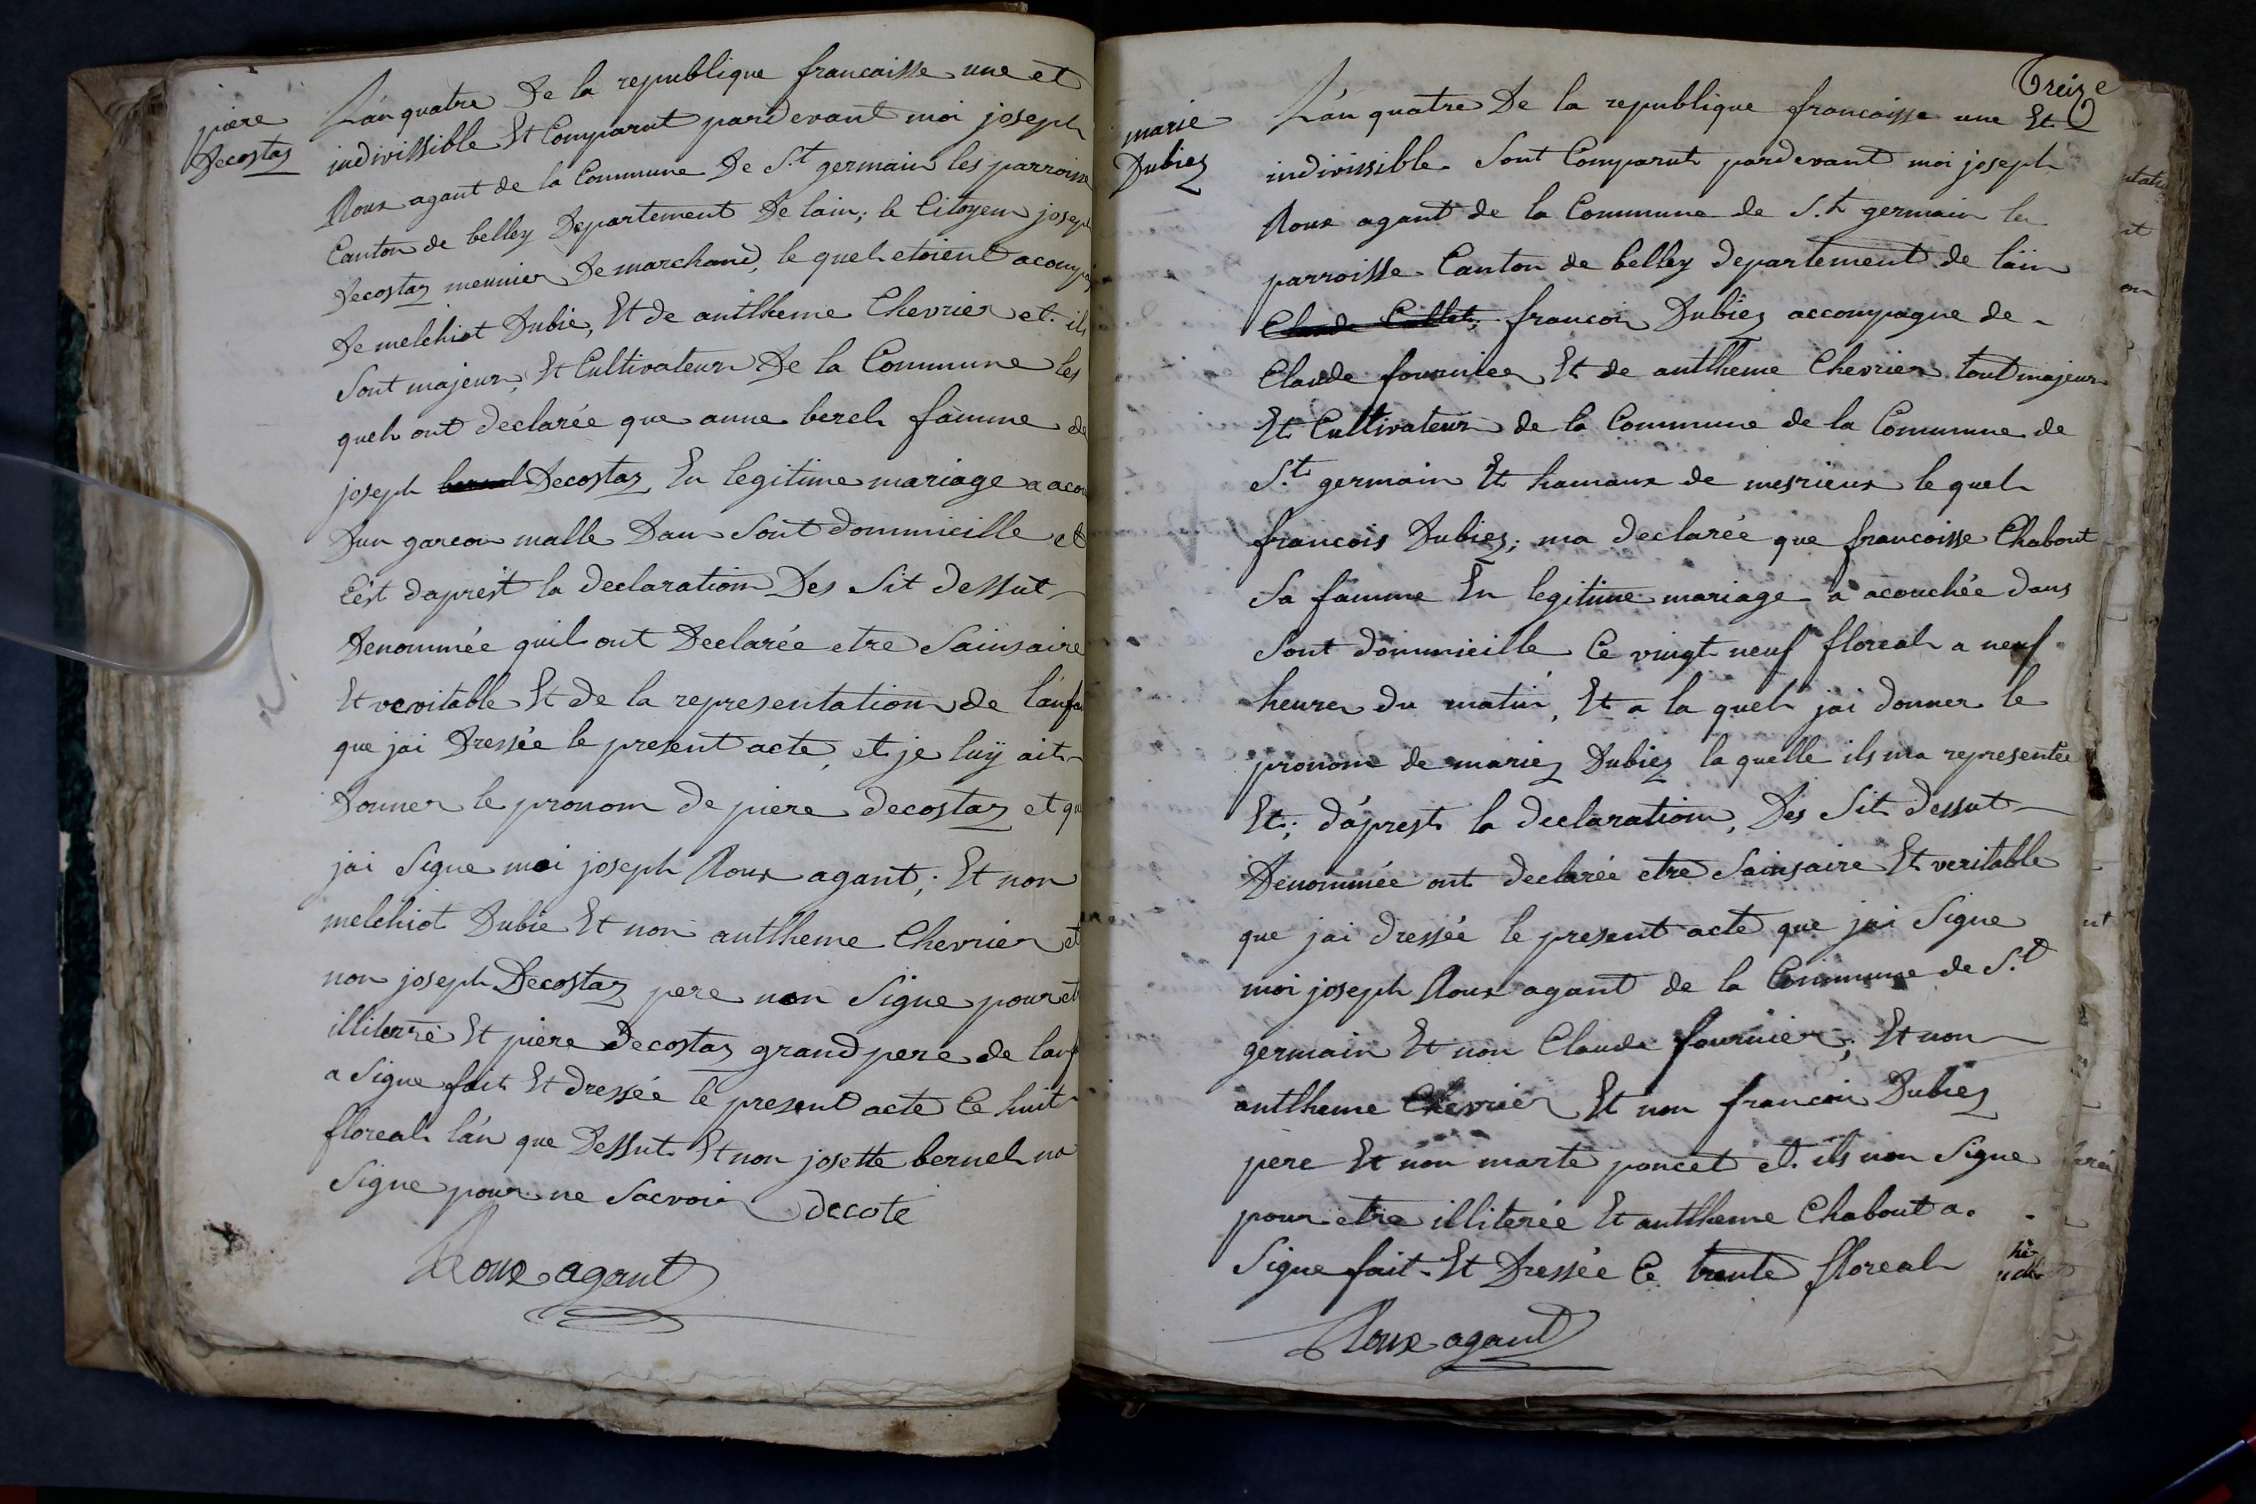 piere
Decostaz
Lán quatre De la republique francaisse une et
indivissible Et Comparut pardevant moi joseph
Roux agant de la Commune De S.t germain les parroisse
Canton de belley Departement De lain; le Citoyen joseph
Decostaz meunier De marchand, le quel etoient acompa
De melchiot Dubie, Et de antlheme Chevrier et il
Sont majeur, Et Cultivateur De la Commune les
quel ont declarée que anne berel famme de
joseph Decostaz En legitime mariage a acou
Dun garcon malle Dan Sont dommicille et
Cést daprést la declaration Des Sit dessut
Denommée quil ont Declarée etre Sainsaire
Et veritable Et de la representation de lánfa
que jai Dressée le present acte, et je luÿ ait
Donner le pronom de piere decostaz et que
jai Signe moi joseph Roux agant; Et non
melchiot Dubie Et non antlheme Chevrier et
non joseph Decostaz pere non Signe pour et
illiterré Et piere Decostaz grand pere de lanf
a Signe fait Et dressée le present acte Ce huit
floreal lán que Dessut Et non josette bernel na
Signe pour ne Sacvoir decote
Roux agant
Treize
marie
Dubiez
Lán quatre De la republique francaisse une Et
indivissible Sont Comparut pardevant moi joseph
Roux agant de la Commune de S.t germain les
parroisse Canton de belley departement de láin
Claude Collet; francoi Dubiez accompagne de
Claude fournier Et de antlheme Chevrier tout majeur
Et Cultivateur de la Commune de la Commune de
S.t germain Et hamaux de mesrieux le quel
francois Dubiez; ma declarée que francoisse Chabout
Sa famme En legitime mariage a acouchée dans
Sont dommicille Ce vingt neuf floreal a neuf
heure du matin, Et a la quel jai donner le
pronom de mariez Dubiez la quelle ils ma representée
Et; dáprest la declaration, Des Sit dessut
Denommée ont declarée etre Sainsaire Et veritable
que jai dressée le present acte que jai Signe
moi joseph Roux agant de la Commune de S.t
germain Et non Claude fournier; Et non
antlheme Chevrier Et non francoi Dubiez
pere Et non marte poncet et ils non Signe
pour etre illiterée Et antlheme Chabout a
Signe fait Et Dressée Ce trente floreal
Roux agant